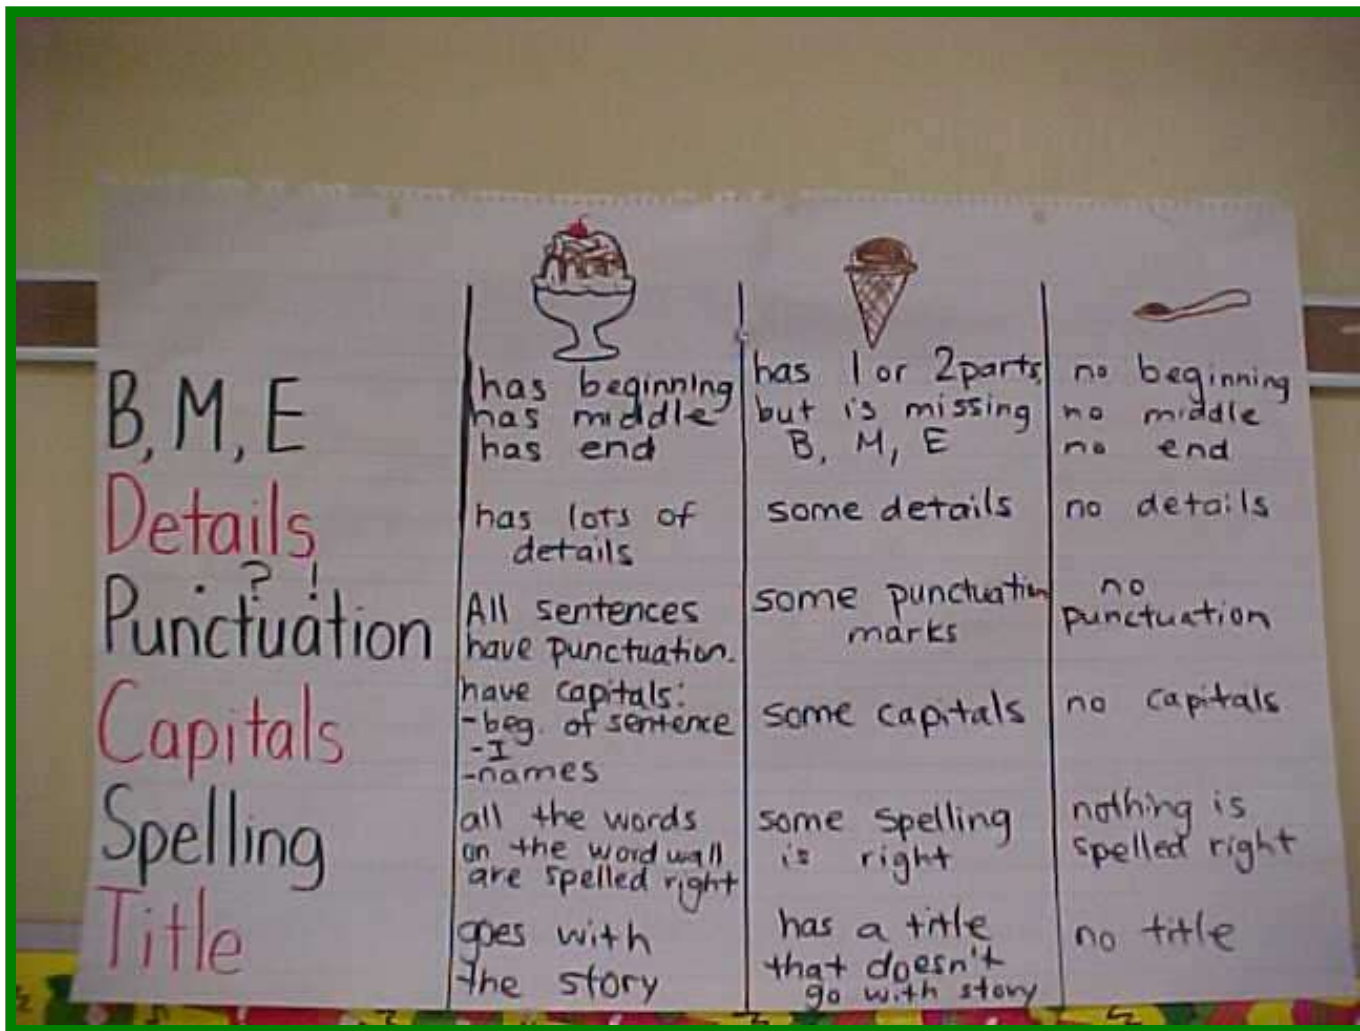 B, M, E
has beginning
has middle
has end
has 1 or 2 parts,
but is missing
B, M, E
no beginning
no middle
no end
Details
has lots of
details
some details
no details
. ? !
Punctuation
All sentences
have punctuation.
some punctuation
marks
no
punctuation
Capitals
have capitals:
-beg. of sentence
-I
-names
some capitals
no capitals
Spelling
all the words
on the word wall
are spelled right
some spelling
is right
nothing is
spelled right
Title
goes with
the story
has a title
that doesn't
go with story
no title